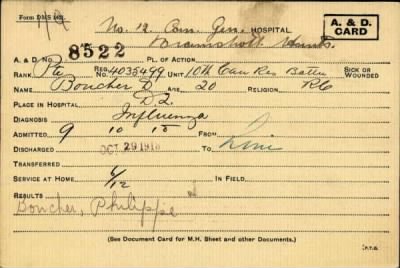 Form DMS 1421.
No. 12 Can. Gen. HOSPITAL
Bramshott Hants.
A. & D. CARD
A. & D. No. 8522 PL. OF ACTION
RANK Pte REG. NO. 4035499 UNIT 10th Can Res Battn SICK OR WOUNDED
NAME Boucher D AGE 20 RELIGION RC
PLACE IN HOSPITAL D2
DIAGNOSIS Influenza
ADMITTED 9 10 18 FROM
DISCHARGED OCT 29 1918 TO Line
TRANSFERRED
SERVICE AT HOME 6/12 IN FIELD
RESULTS
Boucher, Philippe
(See Document Card for M.H. Sheet and other Documents.)